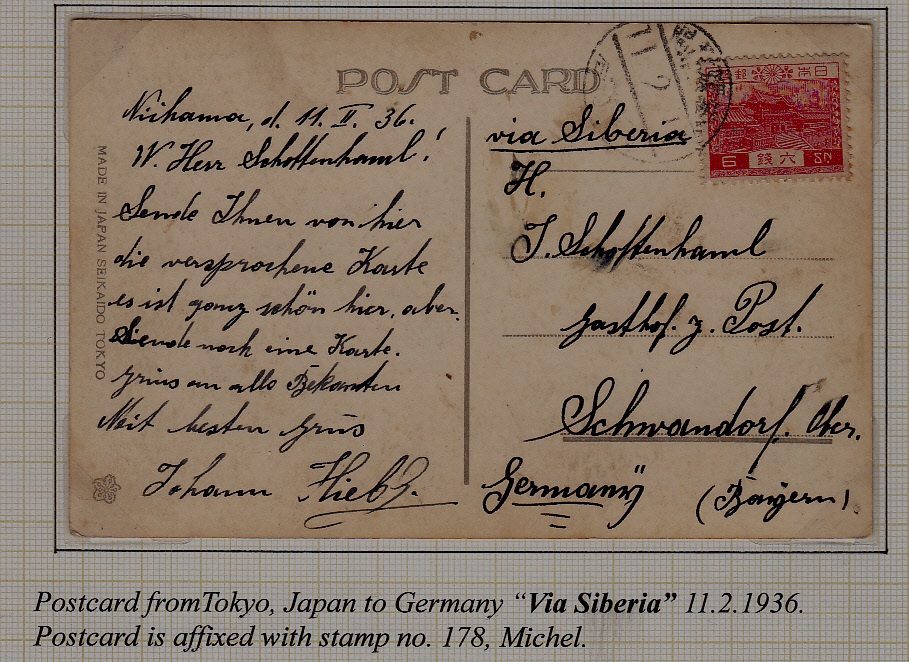 POST CARD
Niihama, d. 11. II. 36.
W. Herr Schoffenhaml!
Sende Ihnen von hier
die versprochene Karte
es ist ganz schön hier, aber.
Sende noch eine Karte.
Grüs an alle Bekanten
Mit besten Grüs
Johann
MADE IN JAPAN SEIKAIDO TOKYO
via Siberia
H.
J. Schoffenhaml
Gasthof. z. Post.
Schwandorf. Ober.
Germany
(Bayern)
日本郵
6 銭六
Postcard fromTokyo, Japan to Germany “Via Siberia” 11.2.1936.
Postcard is affixed with stamp no. 178, Michel.